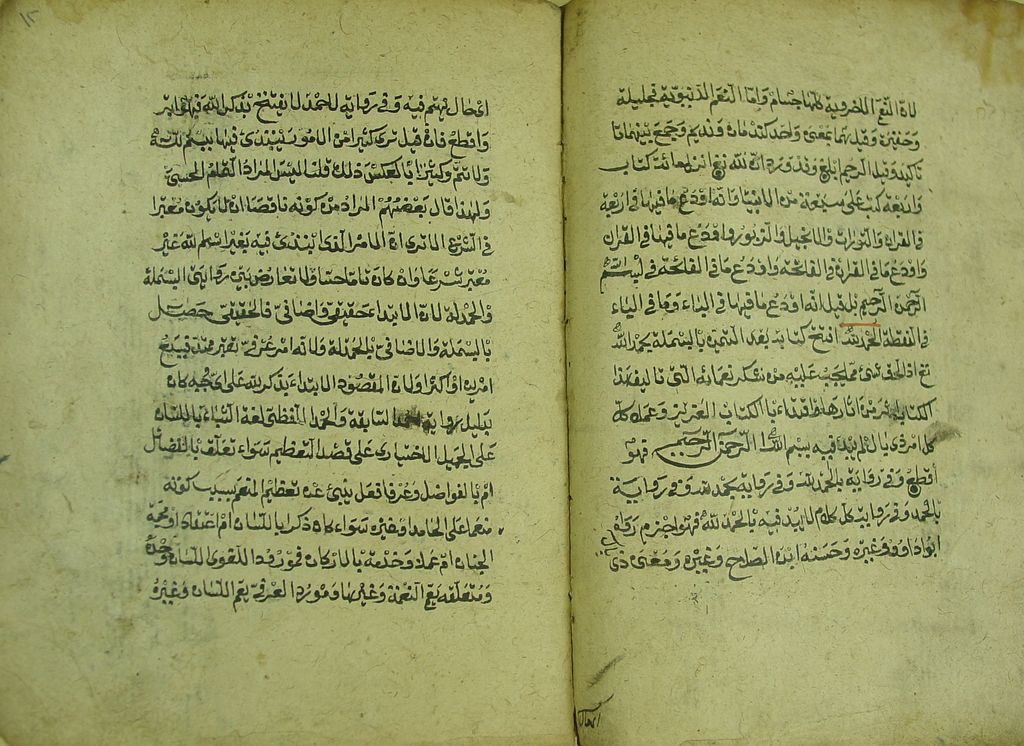 لان النعم الاخروية كلها جسام واما النعم الدنيوية فجليلة
وحقيرة وقيل هما بمعنى واحد كندمان ونديم وجمع بينهما تا
تاكيد وقيل الرحيم ابلغ وقد ورد ان الله تع انزل مائة كتاب
واربعة كتب على سبعة من الانبيا وانه اودع ما فيها في اربعة
في القران والتورات والانجيل والزبور واودع ما فيها في القران
واودع ما في القران في الفاتحة واودع ما في الفاتحة في بسم
الرحمن الرحيم بل قيل انه اودع ما فيها في الباء وما في الباء
في النقطة الحمد لله افتتح كتابه بعد التيمن بالبسملة بحمد الله
تع اداء لحق شئ مما يجب عليه من شكر نعمائه التي تاليف هذا
الكتاب اثر من اثارها واقتداء بالكتاب العزيز وعملا
كل امر ذي بال لم يبدا فيه بسم الله الرحمن الرحيم فهو
اقطع وفي رواية بالحمد لله وفي رواية بحمد الله وفي رواية
بالحمد وفي رواية كل كلام لا يبدا فيه بالحمد لله فهو اجذم رواه
ابو داوود وغيره وحسنه ابن الصلاح وغيره ومعنى ذي
اي حال يهتم فيه وفي رواية لاحمد لا يفتتح بذكر الله فهو ابتر
واقطع فان قيل نرى كثيرا من الامور يبتدئ فيها ببسم الله
ولا تتم وكثيرا بالعكس ذلك قلنا ليس المراد التمام الحسي
ولهذا قال بعضهم المراد من كونه ناقصا ان لا يكون معتبرا
في الشرع الا ترى ان الامر الذي يبتدئ فيه بغير اسم الله غير
معتبر شرعا وان كان تاما حسا ولا تعارض بين روايتي البسملة
والحمدلة لان الابتداء حقيقي واضافي فالحقيقي حصل
بالبسملة والاضافي بالحمدلة ولانه امر عرفي يعتبر ممتدا فيسع
امرين او اكثر اولان المقصود الابتداء بذكر الله على اي وجه كان
بدليل رواية السابقة والحمد اللفظي لغة الثناء باللسان
على الجميل الاختياري على قصد التعظيم سواء تعلق بالفضائل
ام بالفواضل وعرفا فعل ينبئ عن تعظيم المنعم بسبب كونه
منعما على الحامد او غيره سواء كان ذكرا باللسان ام اعتقادا ومحبة
الجنان ام عملا وخدمة بالاركان فمورد اللغوي اللسان وحده
ومتعلقه يعم النعمة وغيرها ومورد العرفي يعم اللسان وغيره